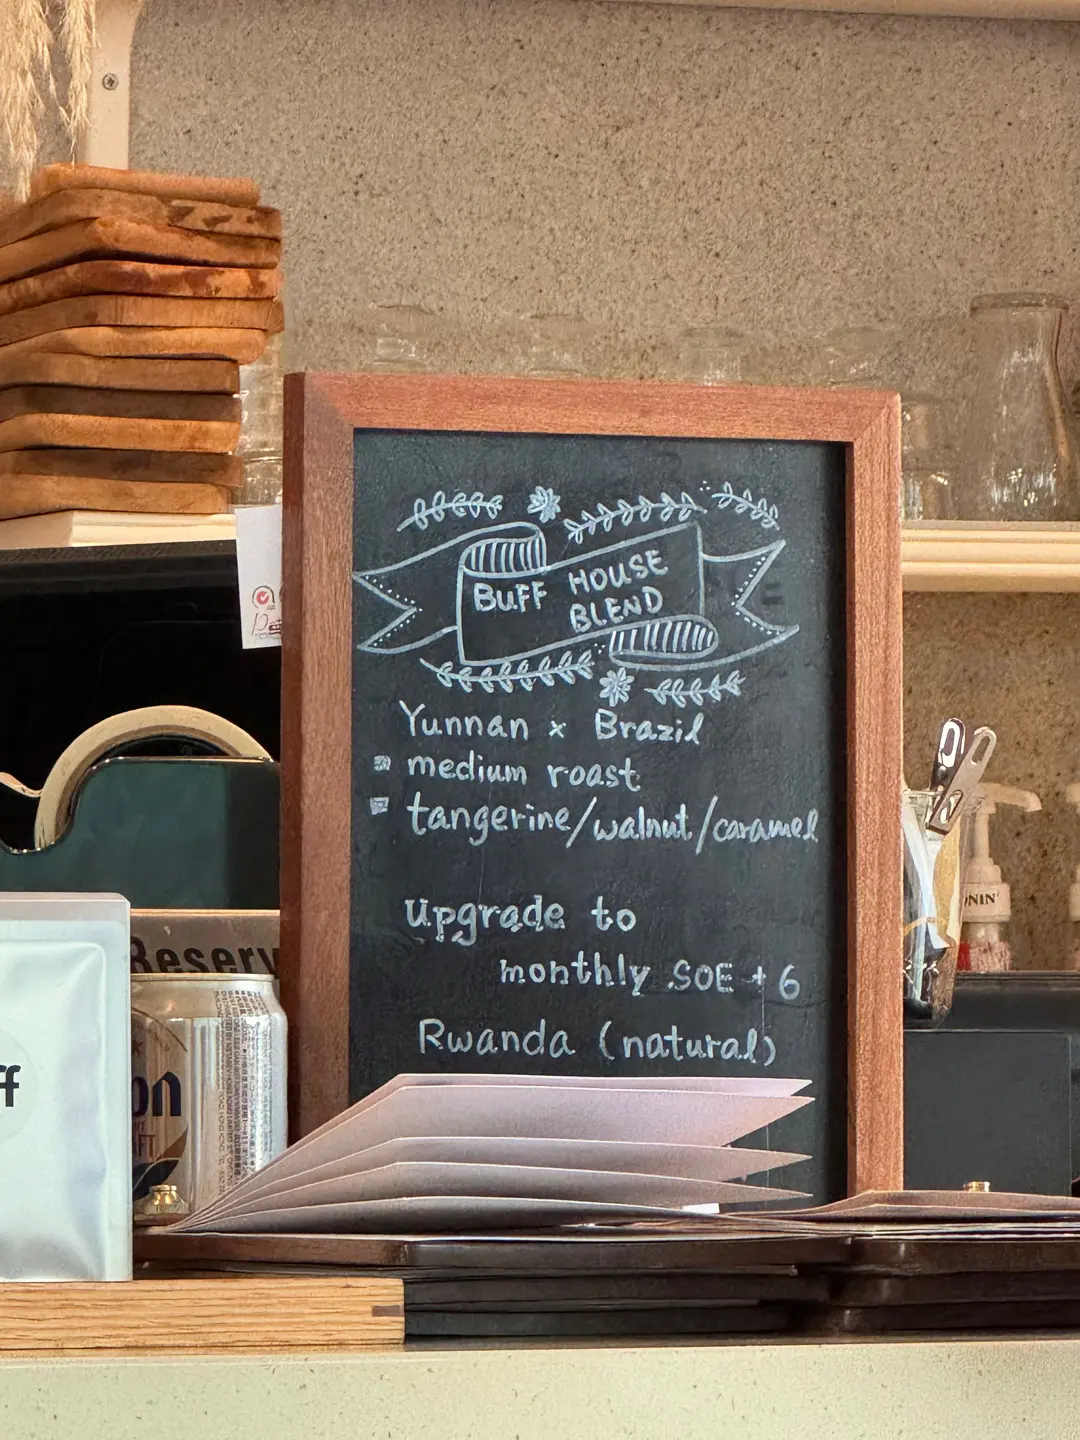 BUFF HOUSE
BLEND
Yunnan x Brazil
medium roast
tangerine/walnut/caramel
upgrade to
monthly SOE + 6
Rwanda (natural)
Reserv
ff
on
ONIN'